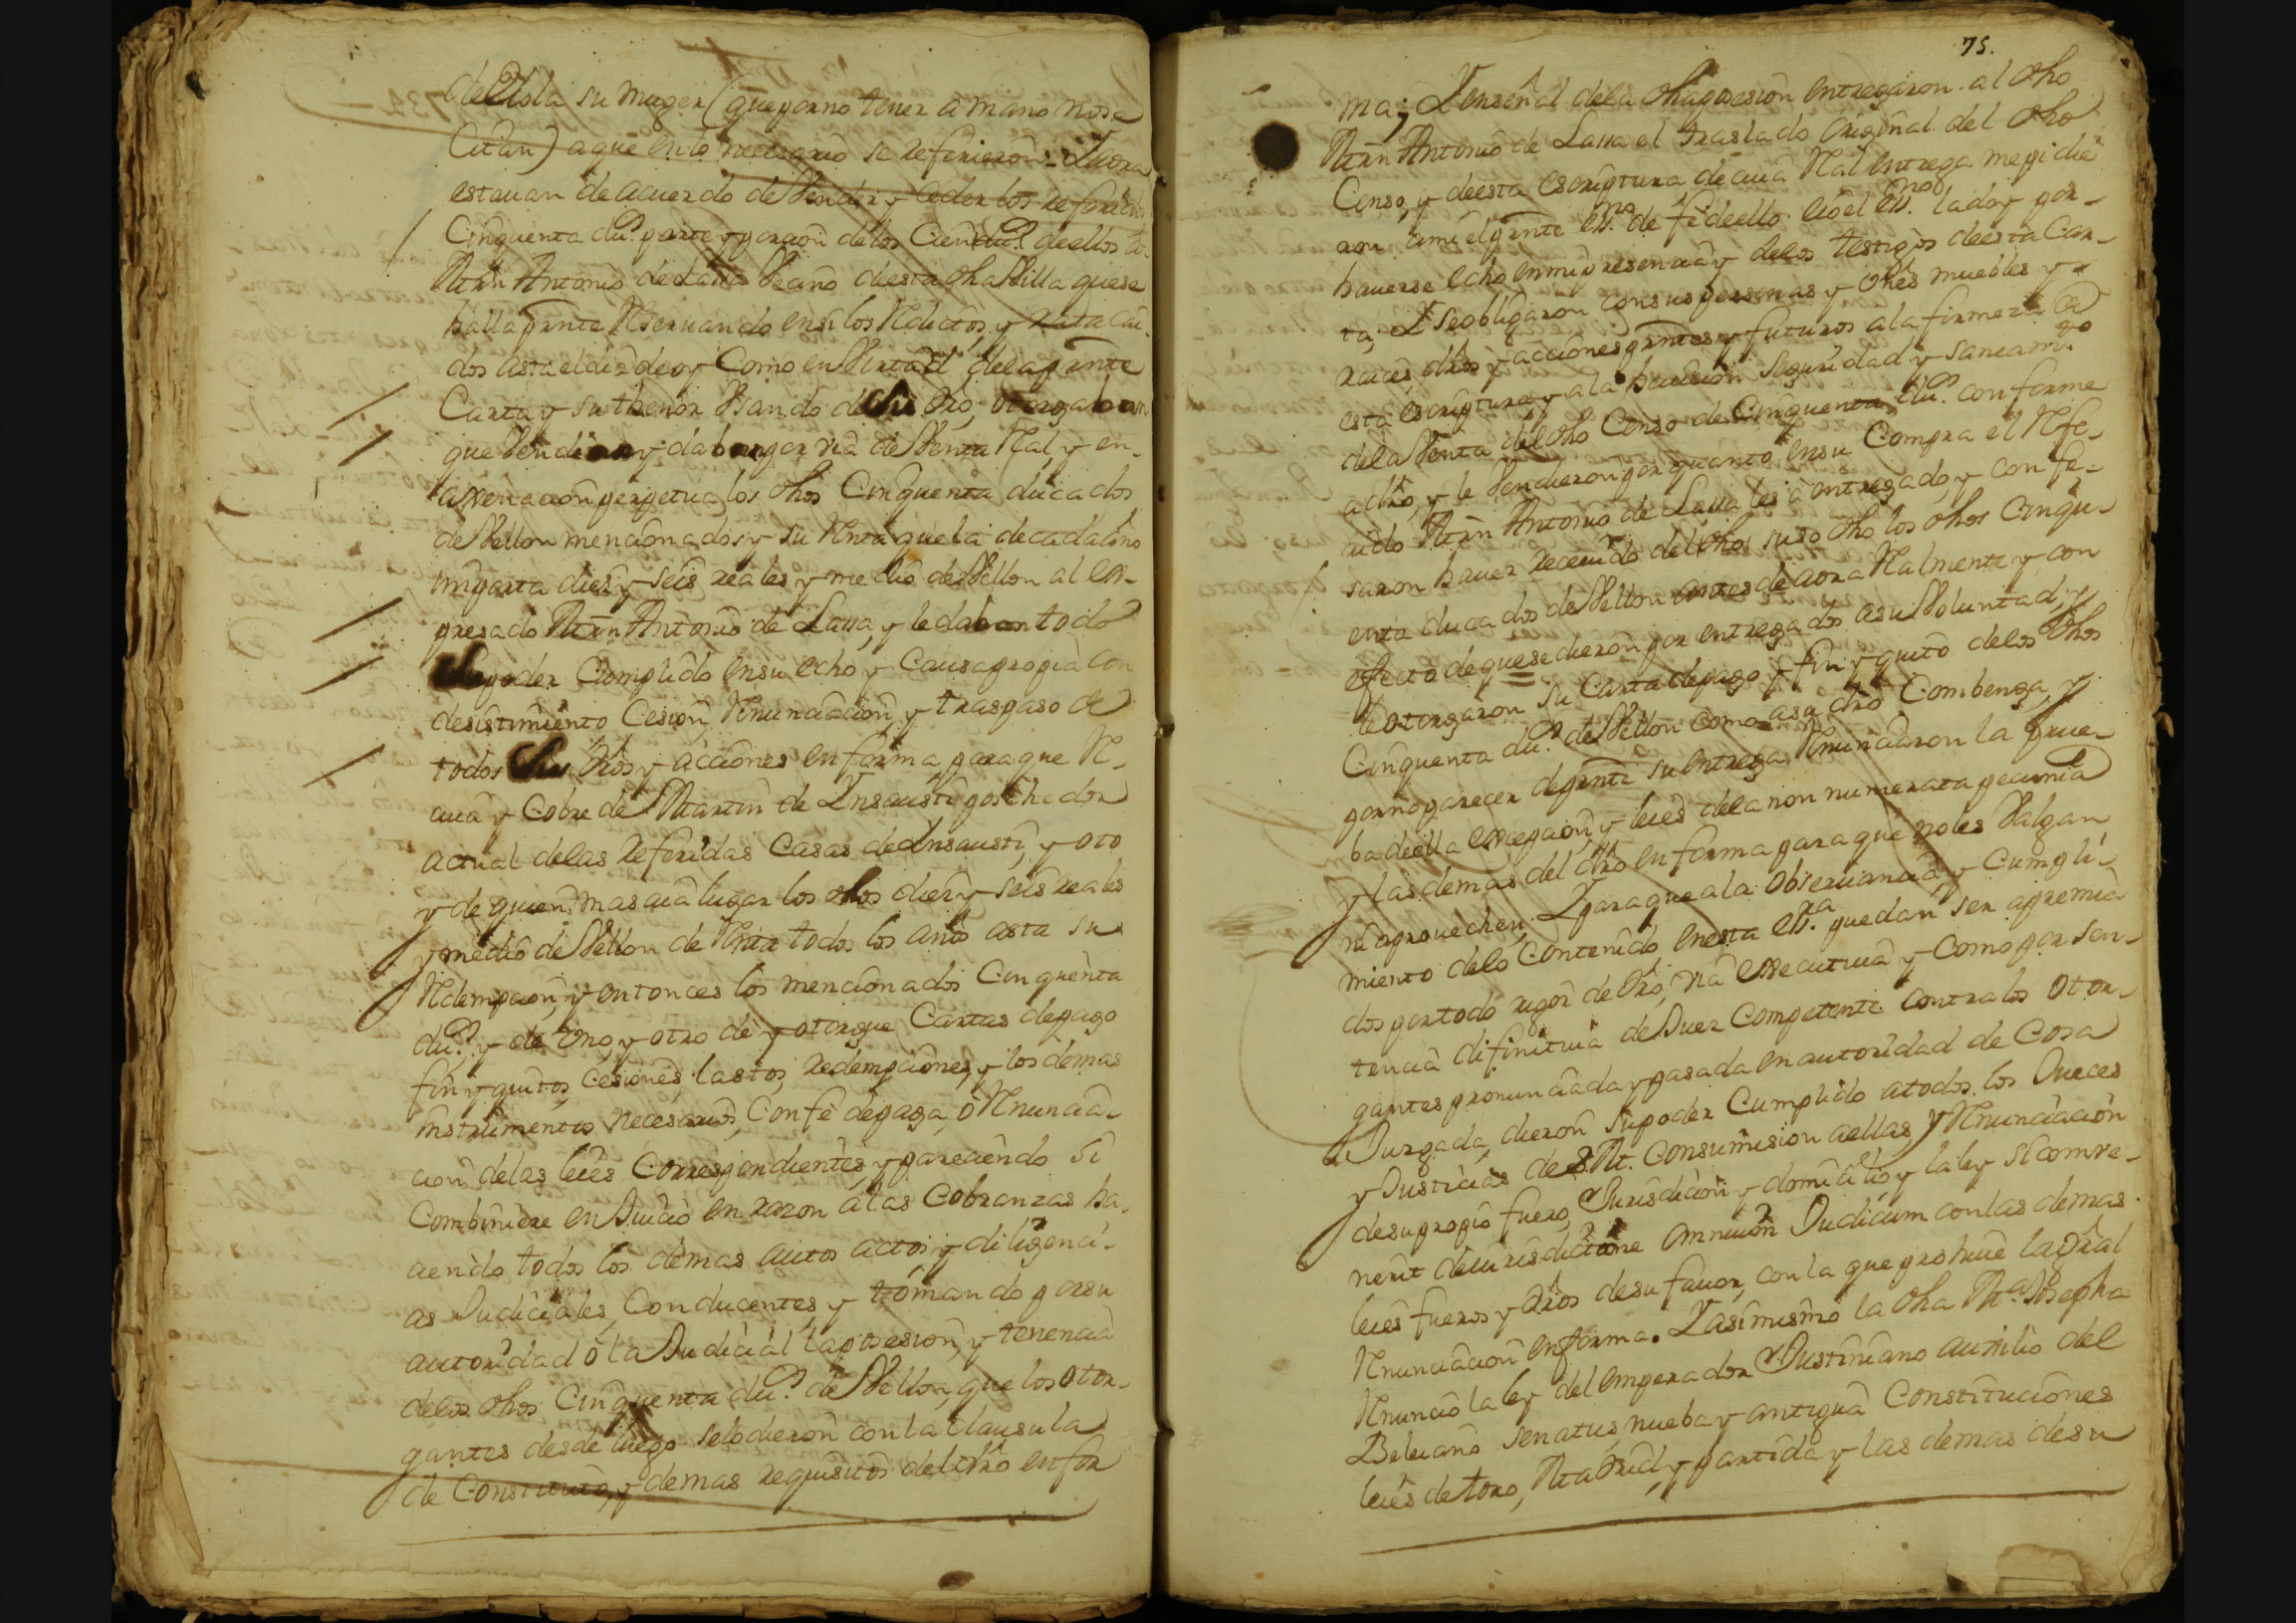 de Eizola su muger (que por no tener a mano no se
Citan) a que en lo necesario se refirieron. Y aora
estauan de acuerdo de Vender y ceder los referidos
Cinquenta du.s parte y porcion de los Cien du.s de ellos a
Mrn Antonio de Lassa Vecino de esta dha Villa que se
halla pnte Reseruando en si los Reditos, y rata cai-
dos asta el dia de oy Como en Virtud de la pnte
Carta y su thenor Vsando de su dro, otorgaban
que Vendian y daban por via de Venta Ral, y en-
axenacion perpetua los dhos Cinquenta ducados
de Vellon mencionados y su Renta que la de cada año
importa diez y seis reales y medio de Vellon al ex-
presado Mrn Antonio de Lassa, y le daban todo
su poder Cumplido en su echo y Causa propia con
desistimiento Cesion, Renunciacion y traspaso de
todos sus dros y acciones en forma para que Re-
ciua y Cobre de Martin de Ynsausti posehedor
actual de las referidas Casas de Ynsausti, y oto
y de quien mas aia lugar los dhos diez y seis reales
y medio de Vellon de Renta todos los años asta su
Redempcion, y entonces los mencionados Cinquenta
du.s y de Vno, y otro de y otorgue Cartas de pago
fin y quitos, cesiones, lastos, redempciones, y los demas
instrumentos necesarios, Con fe de paga, o Renuncia-
cion de las leies Correspondientes, y pareciendo si
Combiniere en Juicio en razon a las Cobranzas ha-
ciendo todos los demas autos actos, y diligenci-
as Judiciales, Conducentes, y tomando por su
autoridad o la Judicial la posesion, y tenencia
de los dhos Cinquenta du.s de Vellon, que los otor-
gantes desde luego se lo dieron con la Clausula
de Constituto, y demas requisitos del dro en for
75.
ma; Y en señal de la dha posesion entregaron al dho
Mrn Antonio de Lassa el traslado original del dho
Censo, y de esta escriptura de cuia Ral entrega me pidie
ron a mi el pnte ess.no de fe de ello eio el ess.no la doy por
hauerse echo en mi presencia y de los testigos de esta Car-
ta, Y se obligaron con sus personas y vnes muebles y
raices, dros y acciones pntes y futuros a la firmeza de
esta escriptura y a la heuicion seguridad y saneam.to
de la Venta del dho Censo de Cinquenta du.s conforme
a dro, y le Vendieron por quanto en su Compra el Refe-
rido Mrn Antonio de Lassa les a entregado, y confe-
saron hauer receuido del dho suso dho los dhos Cinqu-
enta ducados de Vellon antes de aora Ralmente y con
efecto de que se dieron por entregados a su Voluntad, y
le otorgaron su Carta de pago y fin y quito de los dhos
Cinquenta du.s de Vellon como a su dro Combenga, y
por no parecer de pnte su entrega Renunciaron la prue-
ba de ella excepcion, y leies de la non numerata pecunia
y las demas del dro en forma para que no les Valgan
ni aprouechen. Y para que a la Obseruancia, y Cumpli-
miento de lo Contenido en esta ess.ra puedan ser apremia
dos por todo rigor de dro, via executiua y Como por sen-
tencia difinitiua de Juez Competente contra los otor-
gantes pronunciada y pasada en autoridad de Cosa
Juzgada, dieron su poder Cumplido a todos los Jueces
y Justicias de S. M. Con sumision a ellas, y Renunciacion
de su propio fuero, Jurisdicion y domicilio y la ley si comve-
nerit de iurisdictione omniun Judicum con las demas
leies fueros y dros de su fauor, con la que prohiue la gral
Renunciacion en forma. Y asi mismo la dha M.a Josepha
Renuncio la ley del emperador Justiniano auxilio del
Beleiano senatus, nueba y antigua Constituciones
leies de toro, Madrid, y partida y las demas de su